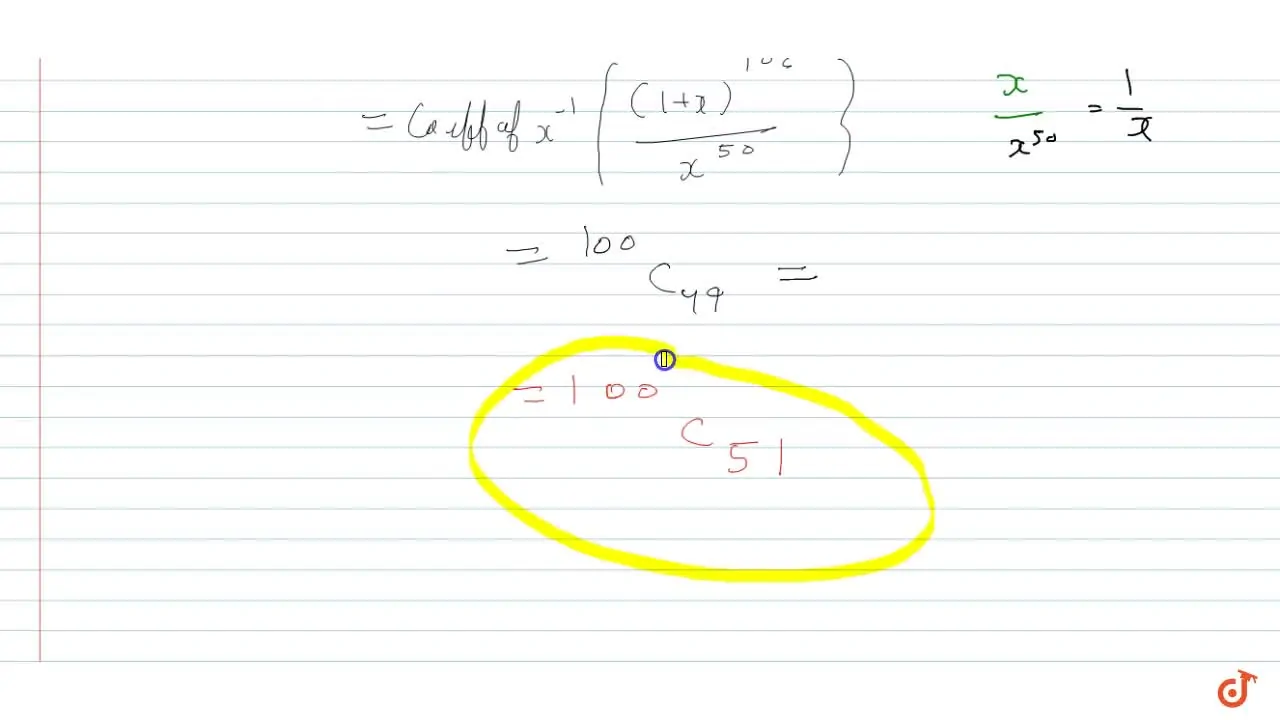 = Coeff of x⁻¹ { (1+x)¹⁰⁰ / x⁵⁰ }
x / x⁵⁰ = 1 / x
= ¹⁰⁰C₄₉ =
= ¹⁰⁰C₅₁